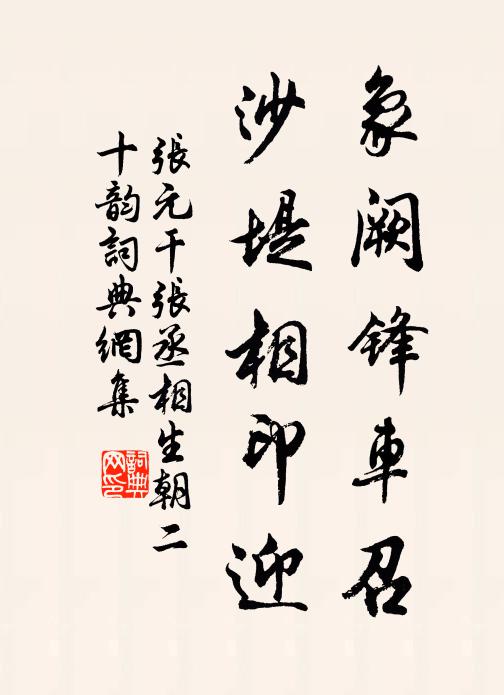 象阙锋車召
沙堤相印迎
張元干張丞相生朝二
十韵詞典網集
詞典網印